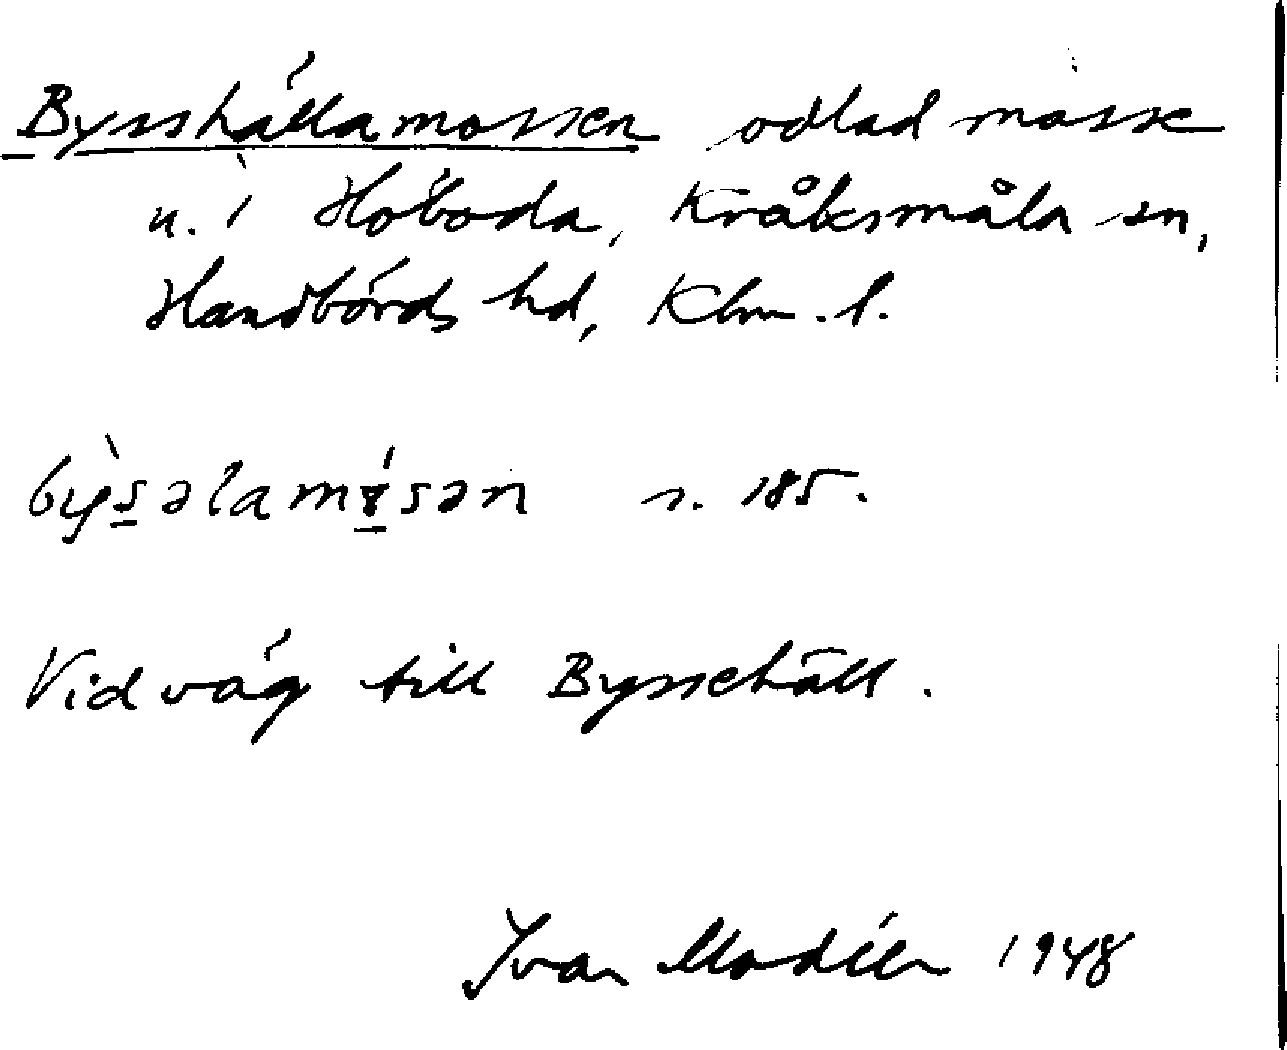 Bysshällamossen odlad mosse
u. i Höboda, Kråksmåla sn,
Handbörds hd, Klm. l.
bỳs̲əlamɤ̲́sən n. 185.
Vid väg till Byssehäll.
Ivar Modéer 1948